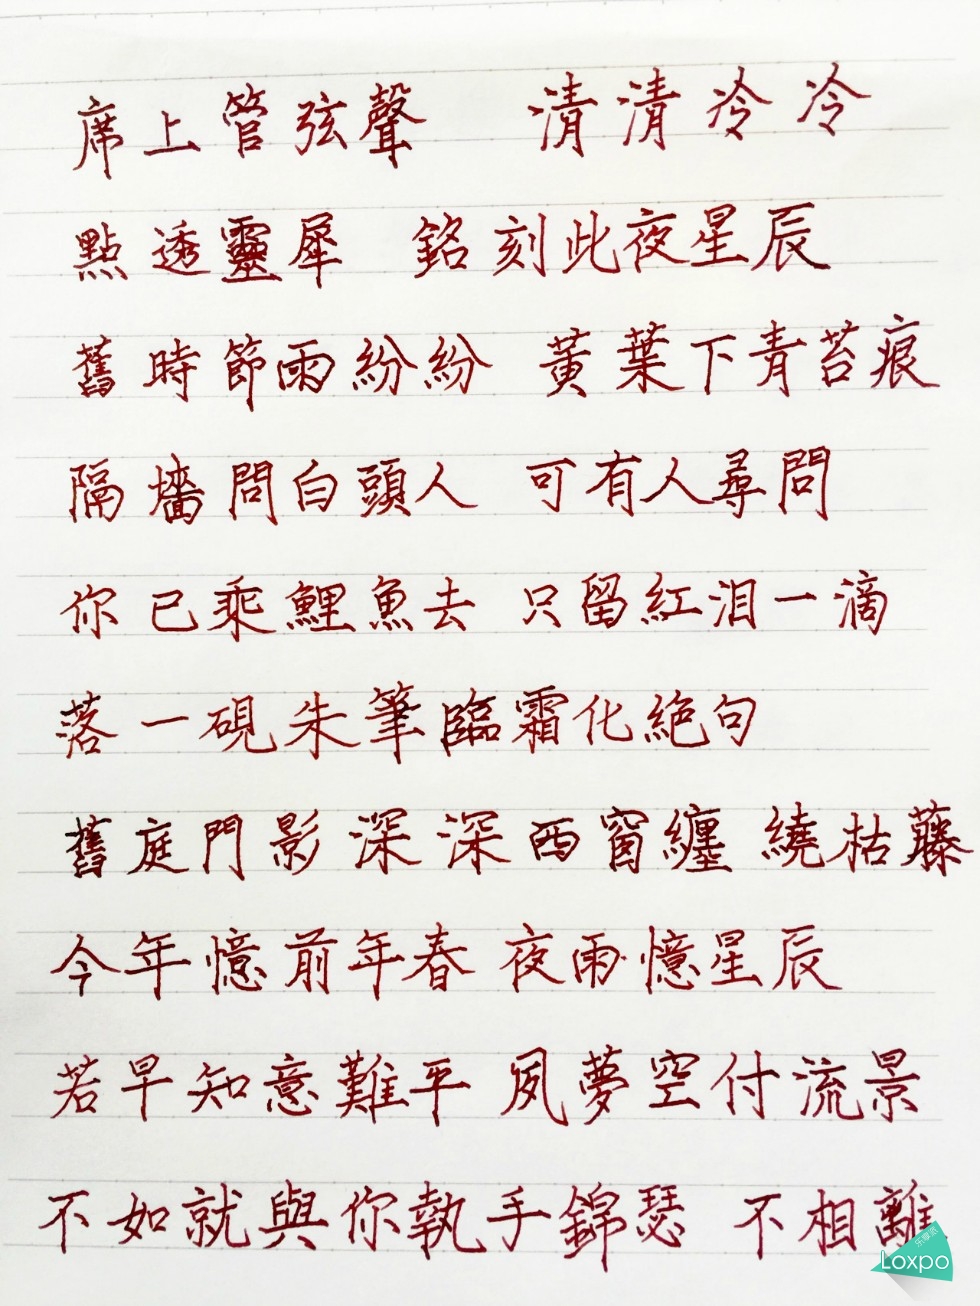 席上管弦聲 清清冷冷
點透靈犀 銘刻此夜星辰
舊時節雨紛紛 黃葉下青苔痕
隔墻問白頭人 可有人尋問
你已乘鯉魚去 只留紅泪一滴
落一硯朱筆臨霜化絕句
舊庭門影深深西窗纏 繞枯藤
今年憶前年春 夜雨憶星辰
若早知意難平 夙夢空付流景
不如就與你執手錦瑟 不相離
乐享派
Loxpo